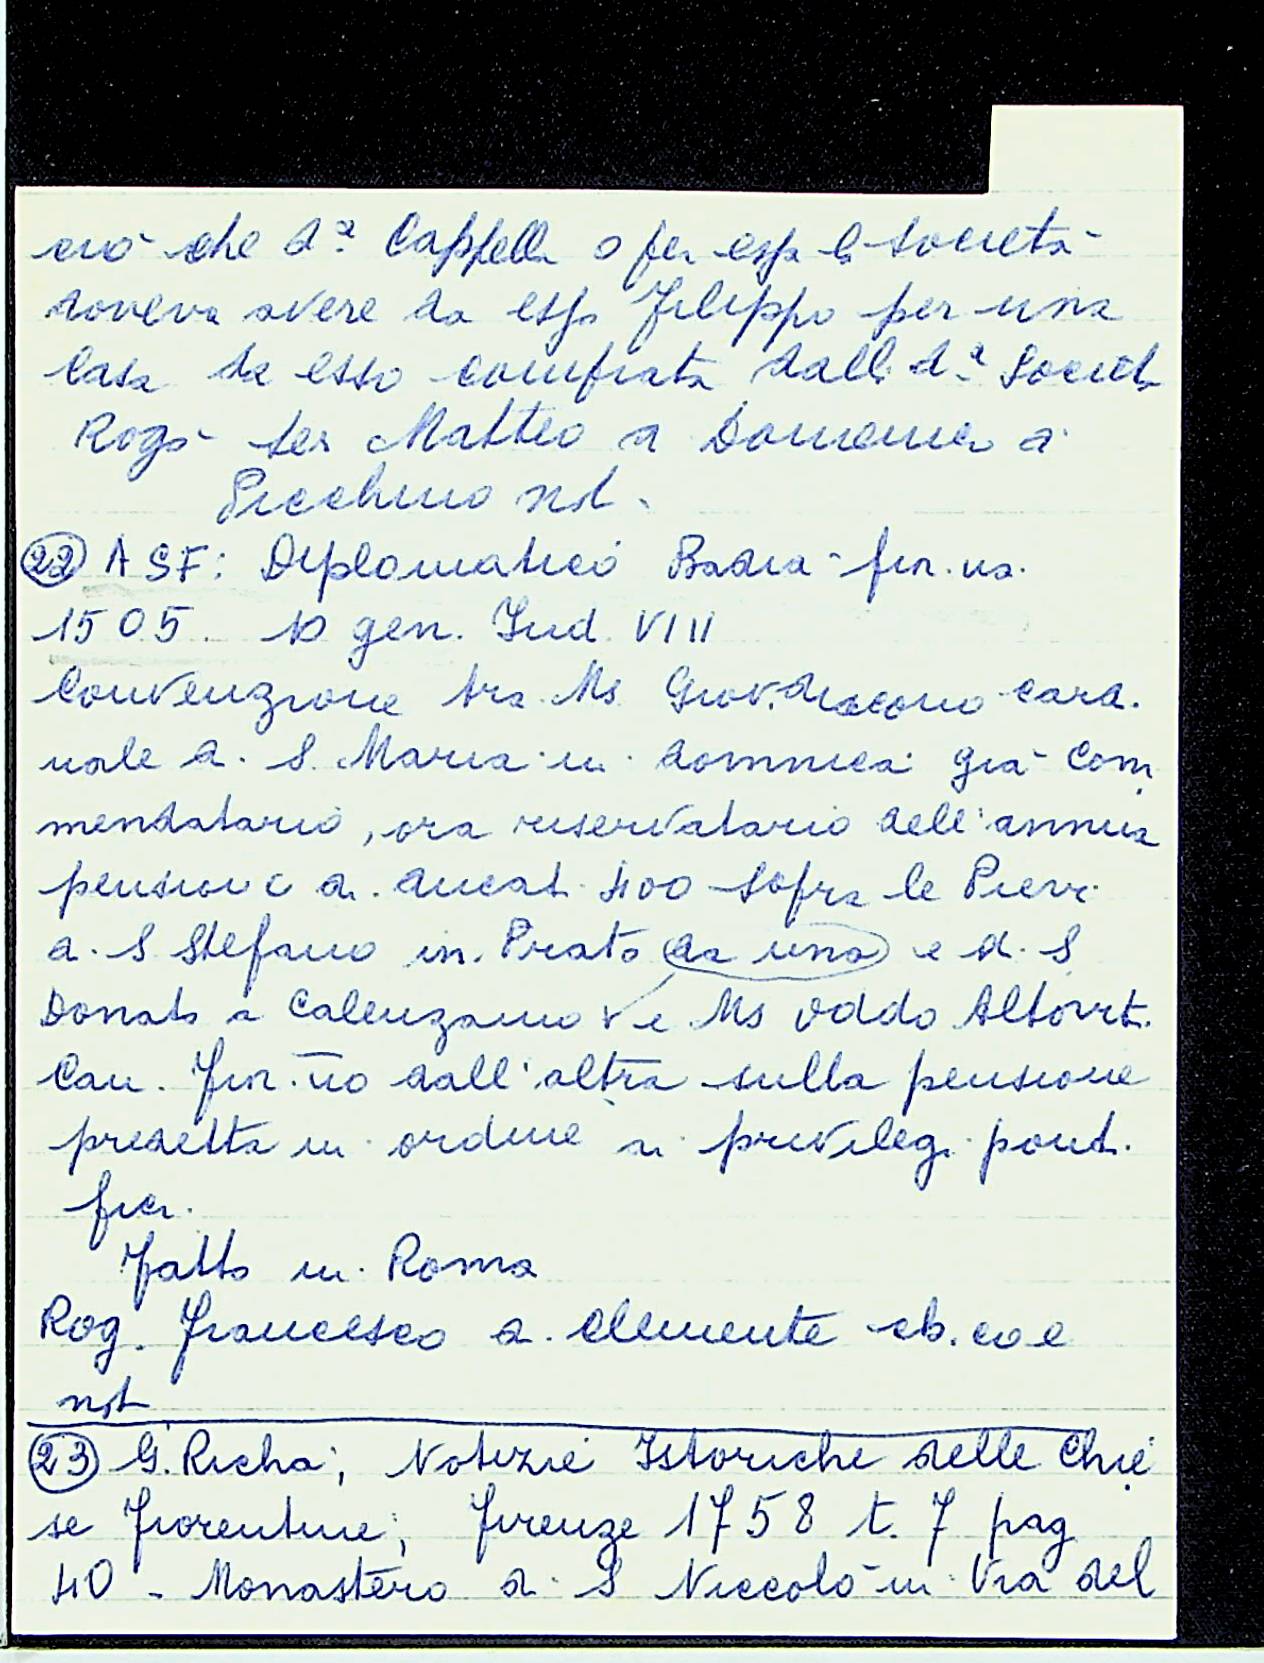 ciò che d.ª Cappella o per essa la Società
doveva avere da esso Filippo per una
Casa da esso comprata dalla d.ª Società
Rogò Ser Matteo di Domenico di
Picchino not.
22 ASF: Diplomatico Badia fior.na.
1505. 10 gen. Ind. VIII
Convenzione tra Ms Giov. diacono card.
nale di S. Maria in domnica già Com
mendatario, ora riservatario dell'annua
pensione di ducat. 400 sopra le Pievi
di S Stefano in Prato da una e di S
Donato a Calenzano e Ms Oddo Altovit.
Can. fior.no dall'altra sulla pensione
predetta in ordine ai privilegi pont.
fici.
Fatto in Roma
Rog. Francesco di Clemente ch.co e
not
23 G. Richa; Notizie Istoriche delle Chie
se Fiorentine; Firenze 1758 t. 7 pag
40 - Monastero di S Niccolò in Via del